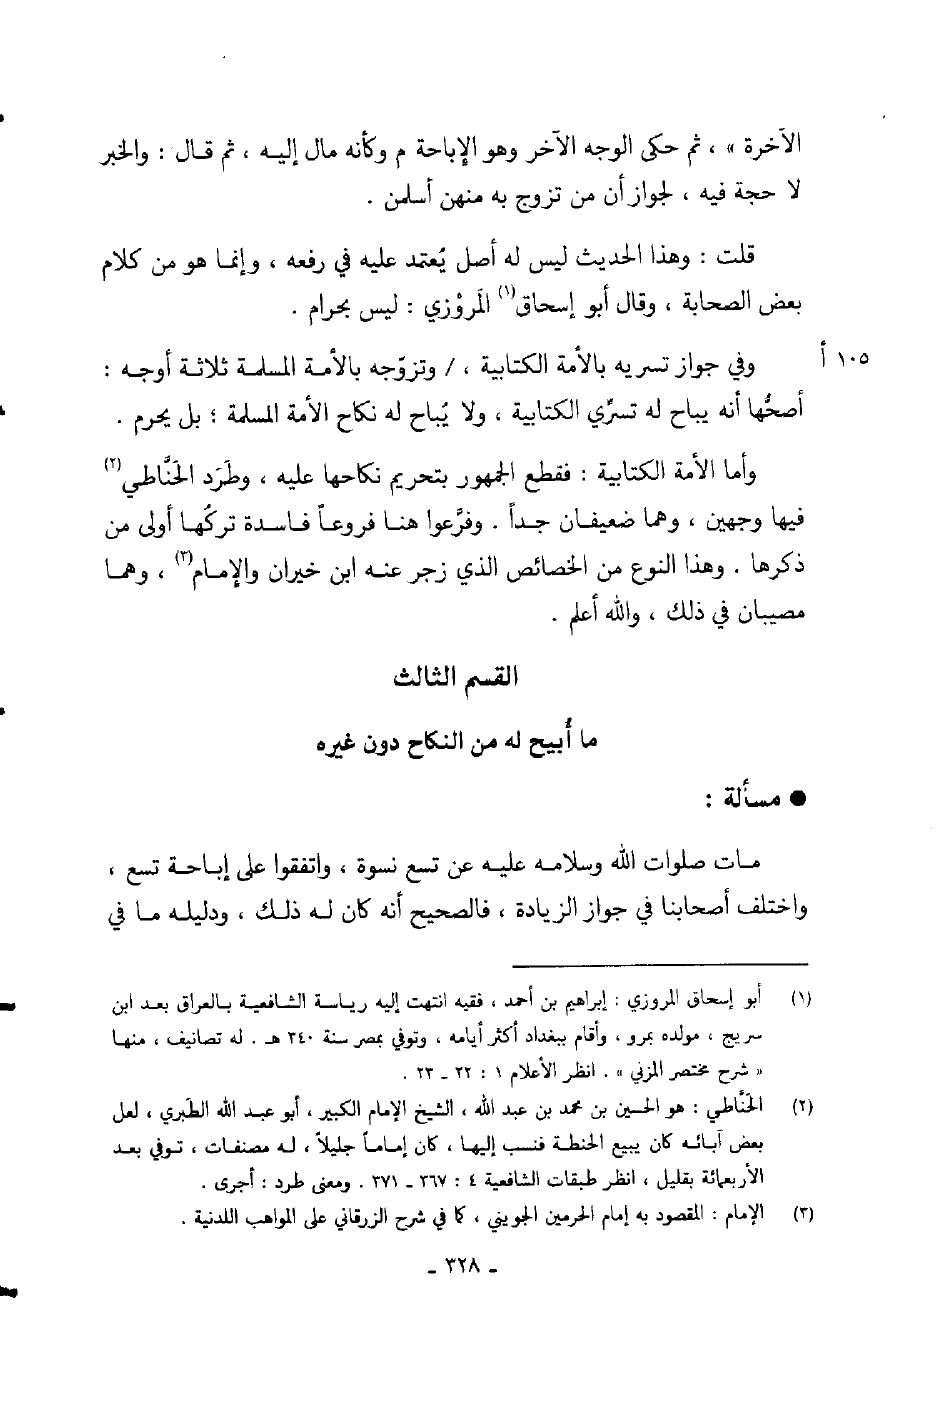 الآخرة » ، ثم حكى الوجه الآخر وهو الإباحة م وكأنه مال إليه ، ثم قال : والخبر
لا حجة فيه ، لجواز أن من تزوج به منهن أسلمن .
قلت : وهذا الحديث ليس له أصل يُعتمد عليه في رفعه ، وإنما هو من كلام
بعض الصحابة ، وقال أبو إسحاق(١) المَروْزي : ليس بحرام .
وفي جواز تسريه بالأمة الكتابية ، / وتزوّجه بالأمة المسلمة ثلاثة أوجه : ١٠٥ أ
أصحُّها أنه يباح له تسرِّي الكتابية ، ولا يُباح له نكاح الأمة المسلمة ؛ بل يحرم .
وأما الأمة الكتابية : فقطع الجمهور بتحريم نكاحها عليه ، وطَرَد الحَنَّاطي(٢)
فيها وجهين ، وهما ضعيفان جداً . وفرَّعوا هنا فروعاً فاسدة تركُها أولى من
ذكرها . وهذا النوع من الخصائص الذي زجر عنه ابن خيران والإمام(٣) ، وهما
مصيبان في ذلك ، والله أعلم .
القسم الثالث
ما أُبيح له من النكاح دون غيره
● مسألة :
مات صلوات الله وسلامه عليه عن تسع نسوة ، واتفقوا على إباحة تسع ،
واختلف أصحابنا في جواز الزيادة ، فالصحيح أنه كان له ذلك ، ودليله ما في
(١) أبو إسحاق المروزي : إبراهيم بن أحمد ، فقيه انتهت إليه رياسة الشافعية بالعراق بعد ابن
سريج ، مولده بمرو ، وأقام ببغداد أكثر أيامه ، وتوفي بمصر سنة ٣٤٠ هـ . له تصانيف ، منها
« شرح مختصر المزني » . انظر الأعلام ١ : ٢٢ ـ ٢٣ .
(٢) الحَنَّاطي : هو الحسين بن محمد بن عبد الله ، الشيخ الإمام الكبير ، أبو عبد الله الطبري ، لعل
بعض آبائه كان يبيع الحنطة فنسب إليها ، كان إماماً جليلاً ، له مصنفات ، توفي بعد
الأربعمائة بقليل ، انظر طبقات الشافعية ٤ : ٣٦٧ ـ ٣٧١ . ومعنى طرد : أجرى .
(٣) الإمام : المقصود به إمام الحرمين الجويني ، كما في شرح الزرقاني على المواهب اللدنية .
ـ ٣٢٨ ـ